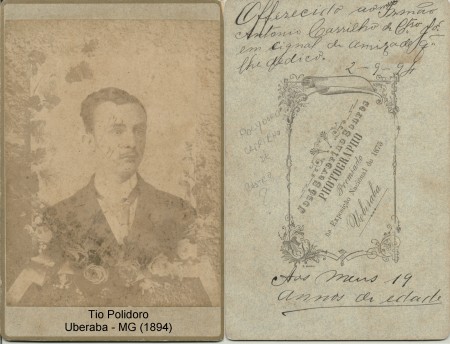 Tio Polidoro
Uberaba - MG (1894)
Offerecido ao Irmão
Antonio Carrilho de Cтro
em signal da amizade q.
lhe dedico.
2-9-94
José Severino Soares
PHOTOGRAPHO
Premiado
na Exposição Nacional de 1875
Uberaba
Aos meus 19
annos de edade